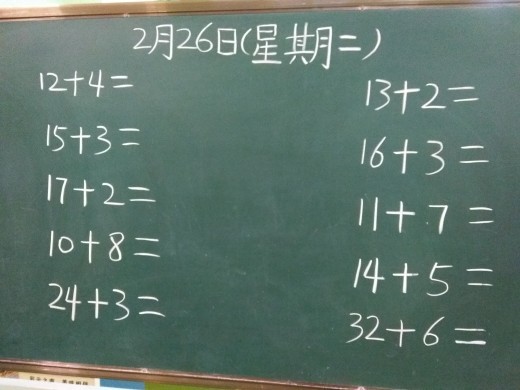 2月26日(星期二)
12+4=
13+2=
15+3=
16+3=
17+2=
11+7=
10+8=
14+5=
24+3=
32+6=